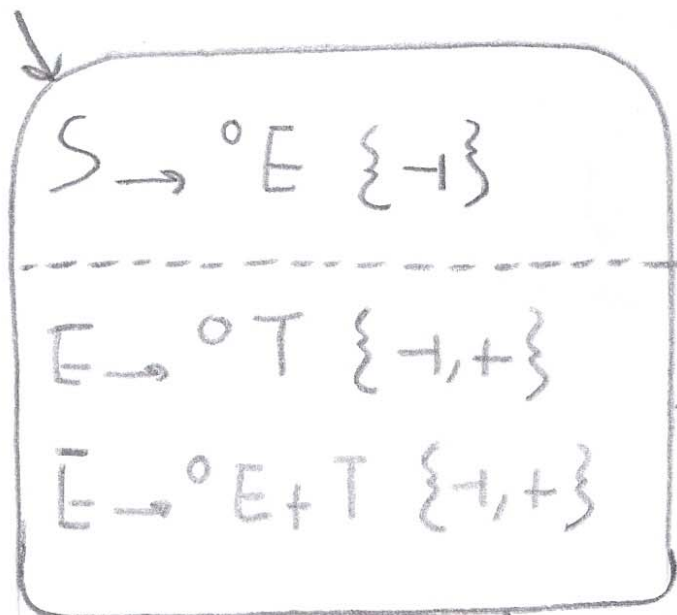 S → °E {⊣}
E → °T {⊣, +}
E → °E + T {⊣, +}